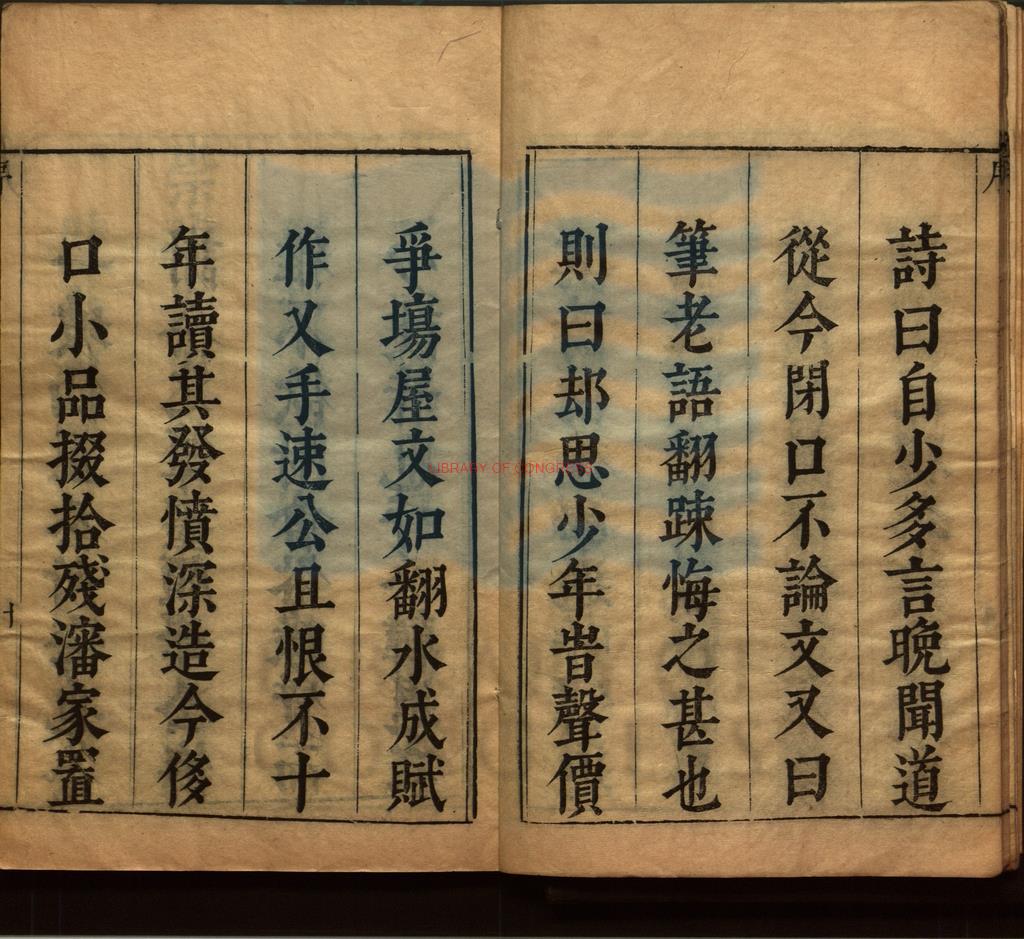 詩曰自少多言晩聞道
從今閉口不論文又曰
筆老語翻踈悔之甚也
則曰却思少年旹聲價
爭塲屋文如翻水成賦
作乂手速公且恨不十
年讀其發憤深造今侈
口小品掇拾殘瀋家置
序
十
LIBRARY OF CONGRESS